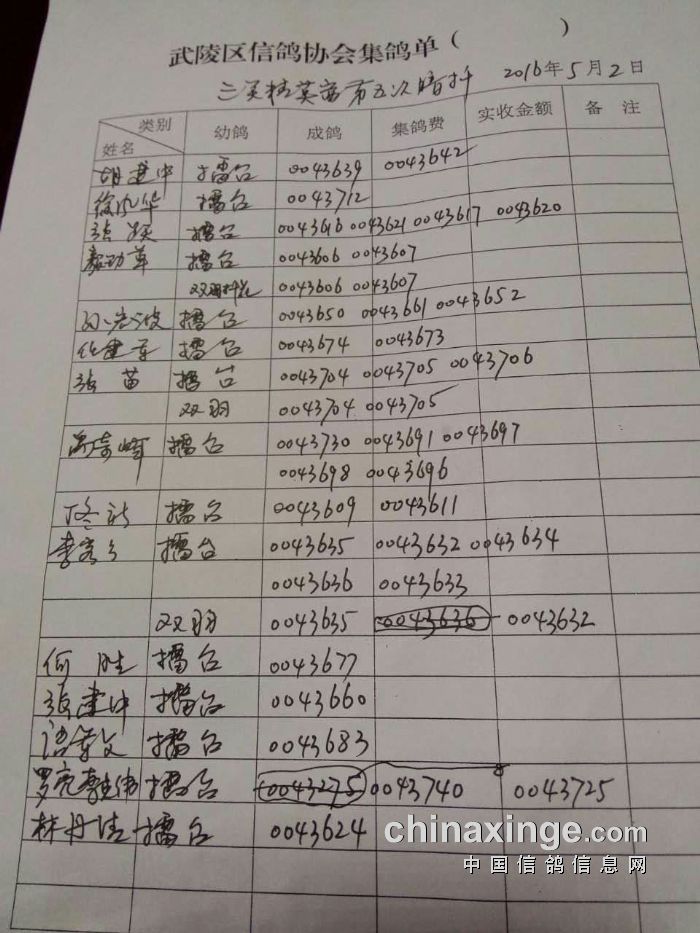 武陵区信鸽协会集鸽单（ ）
2016年5月2日
类别 幼鸽 成鸽 集鸽费 实收金额 备 注
姓名
胡建中 擂台 0043639 0043642
擂台 0043712
张 擂台 0043616 0043621 0043617 0043620
擂台 0043606 0043607
双羽 0043606 0043607
擂台 0043650 0043661 0043652
擂台 0043674 0043673
张苗 擂台 0043704 0043705 0043706
双羽 0043704 0043705
擂台 0043730 0043691 0043697
0043698 0043696
擂台 0043609 0043611
李 擂台 0043635 0043632 0043634
0043636 0043633
双羽 0043635 0043636 0043632
何胜 擂台 0043677
张建中 擂台 0043660
擂台 0043683
罗亮 擂台 0043275 0043740 0043725
林丹 擂台 0043624
chinaxinge.com
中国信鸽信息网